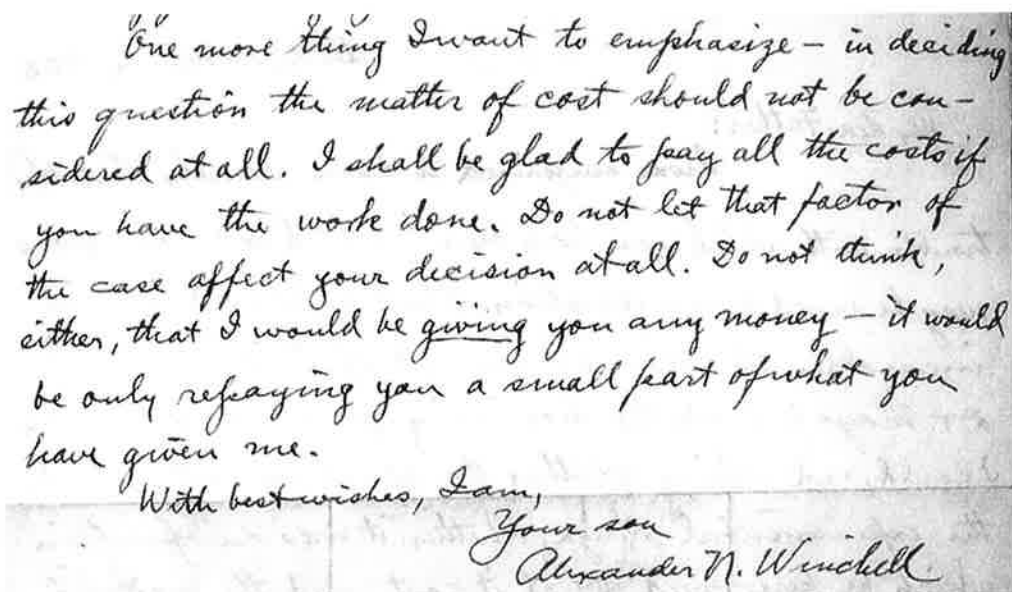 One more thing I want to emphasize – in deciding
this question the matter of cost should not be con-
sidered at all. I shall be glad to pay all the costs if
you have the work done. Do not let that factor of
the case affect your decision at all. Do not think,
either, that I would be giving you any money – it would
be only repaying you a small part of what you
have given me.
With best wishes, I am,
Your son
Alexander N. Winchell.